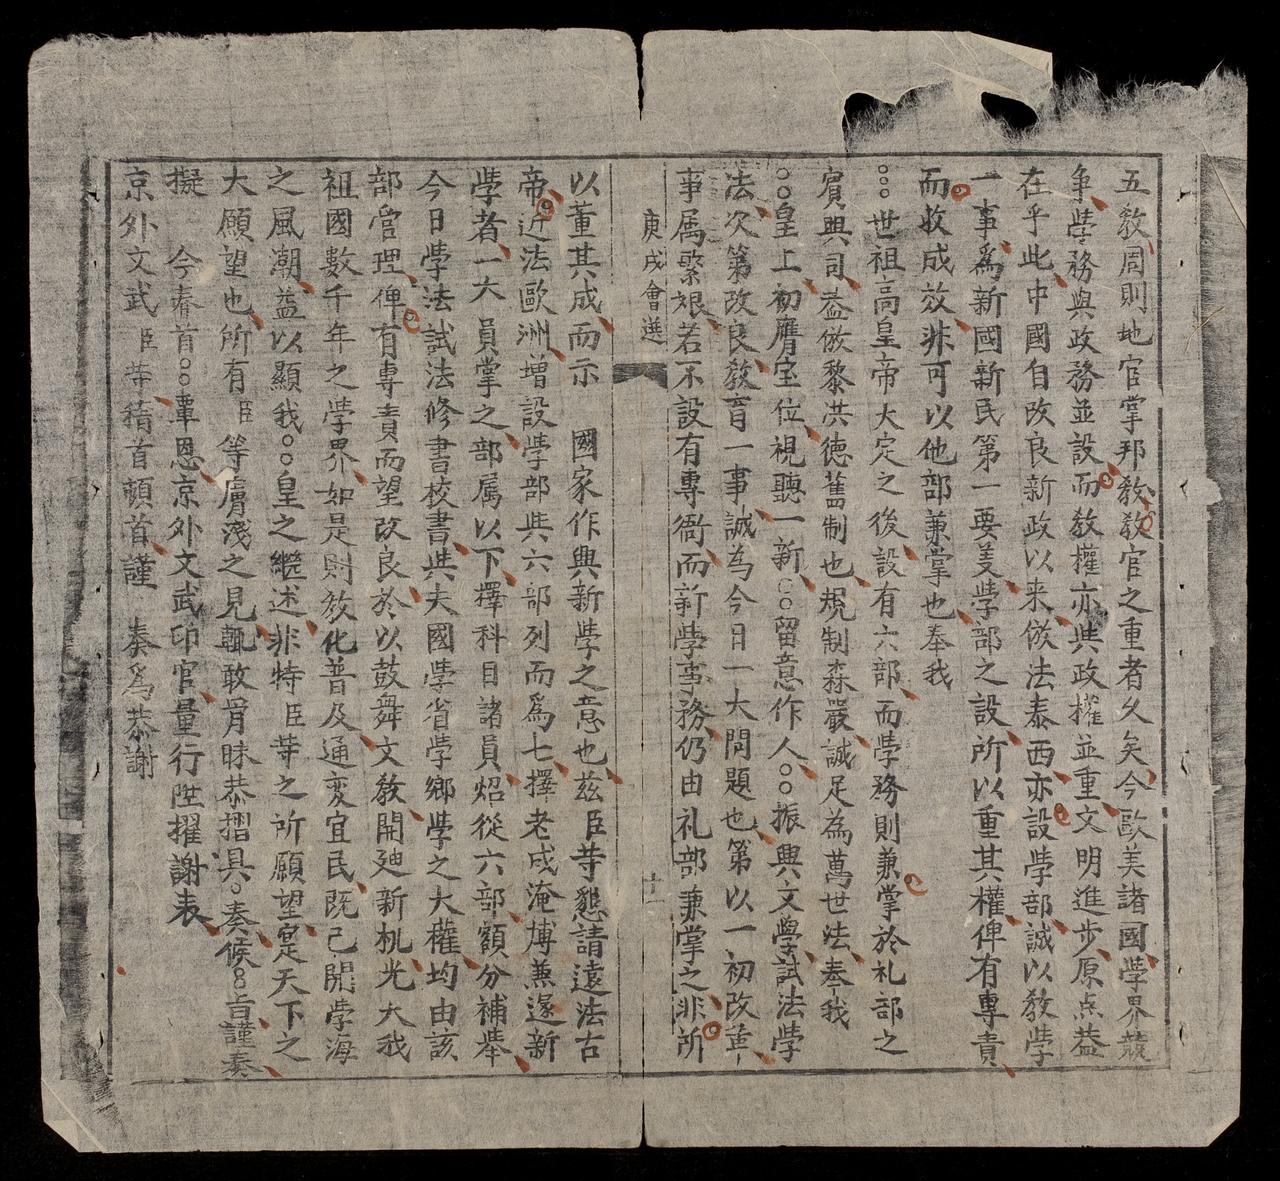 五教周則地官掌邦教教官之重者久矣今歐美諸國學界競
争學務與政務並設而教權亦與政權並重文明進步原点益
在乎此中國自改良新政以来倣法泰西亦設學部誠以教學
一事為新國新民第一要美學部之設所以重其權俾有專責
而收成效非可以他部兼掌也奉我
世祖高皇帝大定之後設有六部而學務則兼掌於礼部之
賓興司益倣黎洪德舊制也規制森嚴誠足為萬世法奉我
皇上初膺宝位視聽一新○○留意作人○○振興文學試法學
法次第改良教育一事誠為今日一大問題也第以一初改革
事属繁艱若不設有專衙而新學事務仍由礼部兼掌之非所
庚戌會選
十一
以董其成而示 國家作興新學之意也兹臣等懇請遠法古
帝近法歐洲增設學部與六部列而爲七擇老成淹博兼邃新
學者一大員掌之部属以下擇科目諸員炤從六部額分補舉
今日學法試法修書校書與夫國學省學鄉學之大權均由該
部管理俾有專責而望改良於以鼓舞文教開廸新机光大我
祖國數千年之學界如是則教化普及通变宜民既已開學海
之風潮益以顯我○○皇之繼述非特臣等之所願望寔天下之
大願望也所有臣等膚淺之見輒敢冐昧恭摺具○奏候○○旨謹奏
擬 今春首○○覃恩京外文武印官量行陞擢謝表
京外文武臣等稽首頓首謹 奏爲恭謝